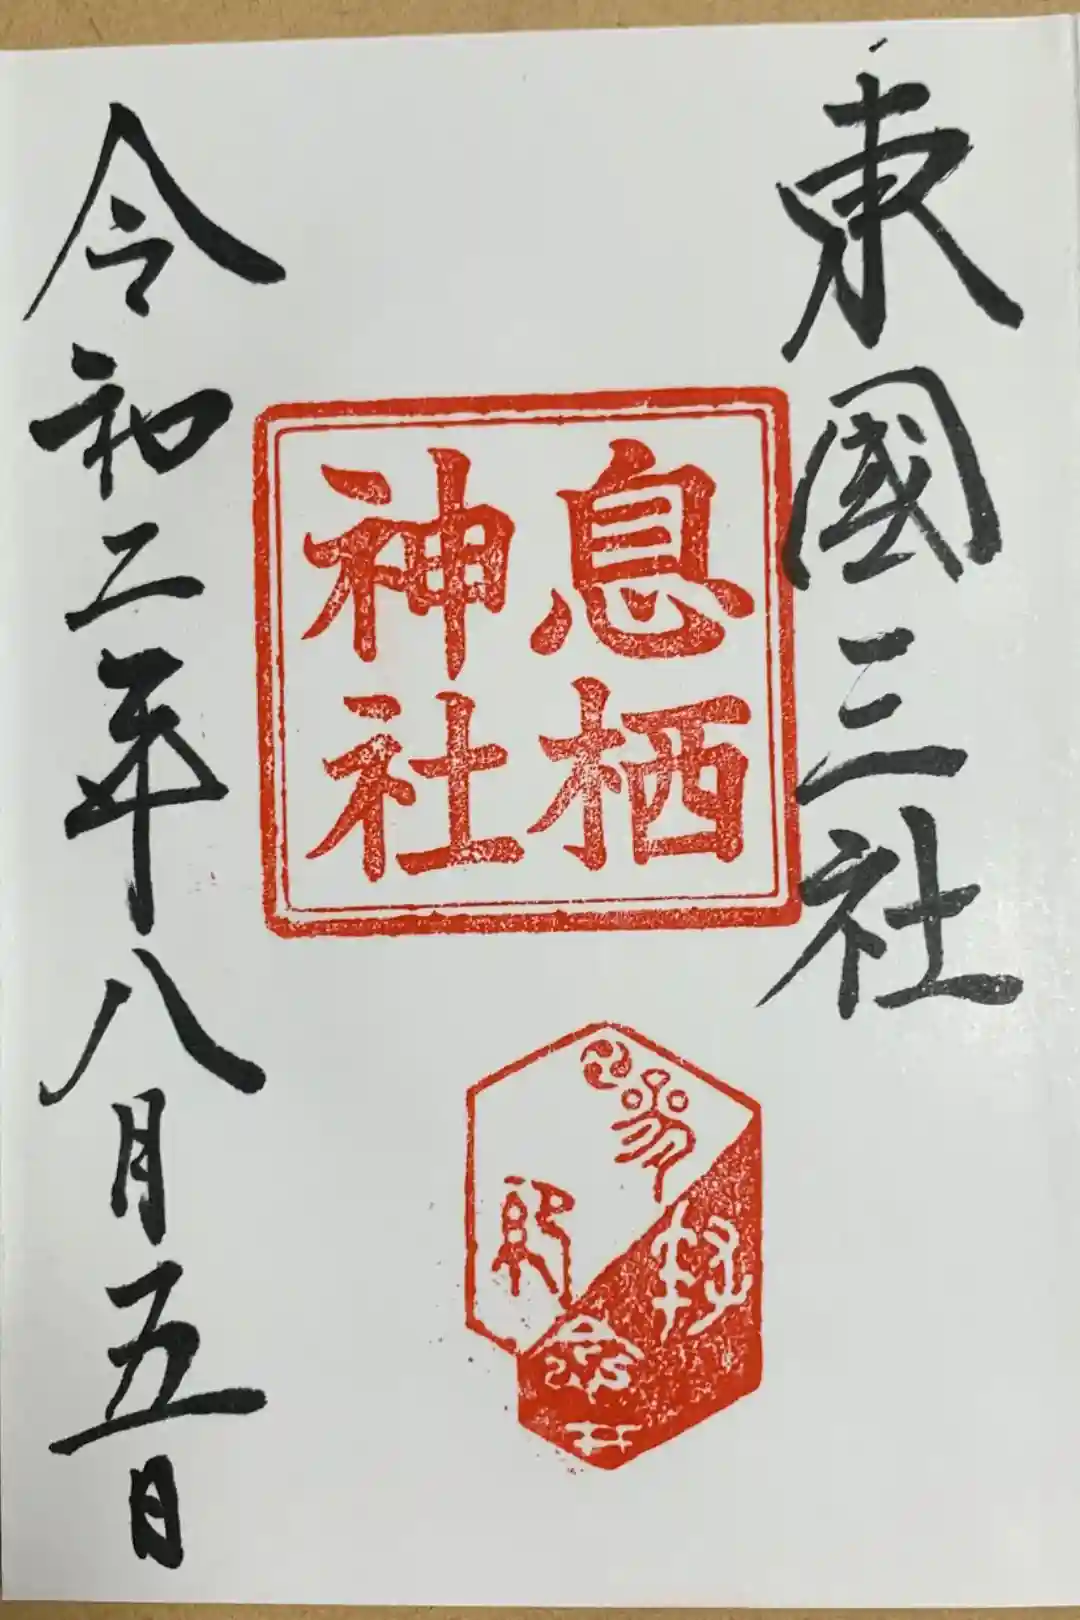 東國三社
息栖
神社
令和二年八月五日